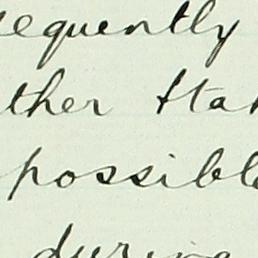 equently
ther Sta
possible
during